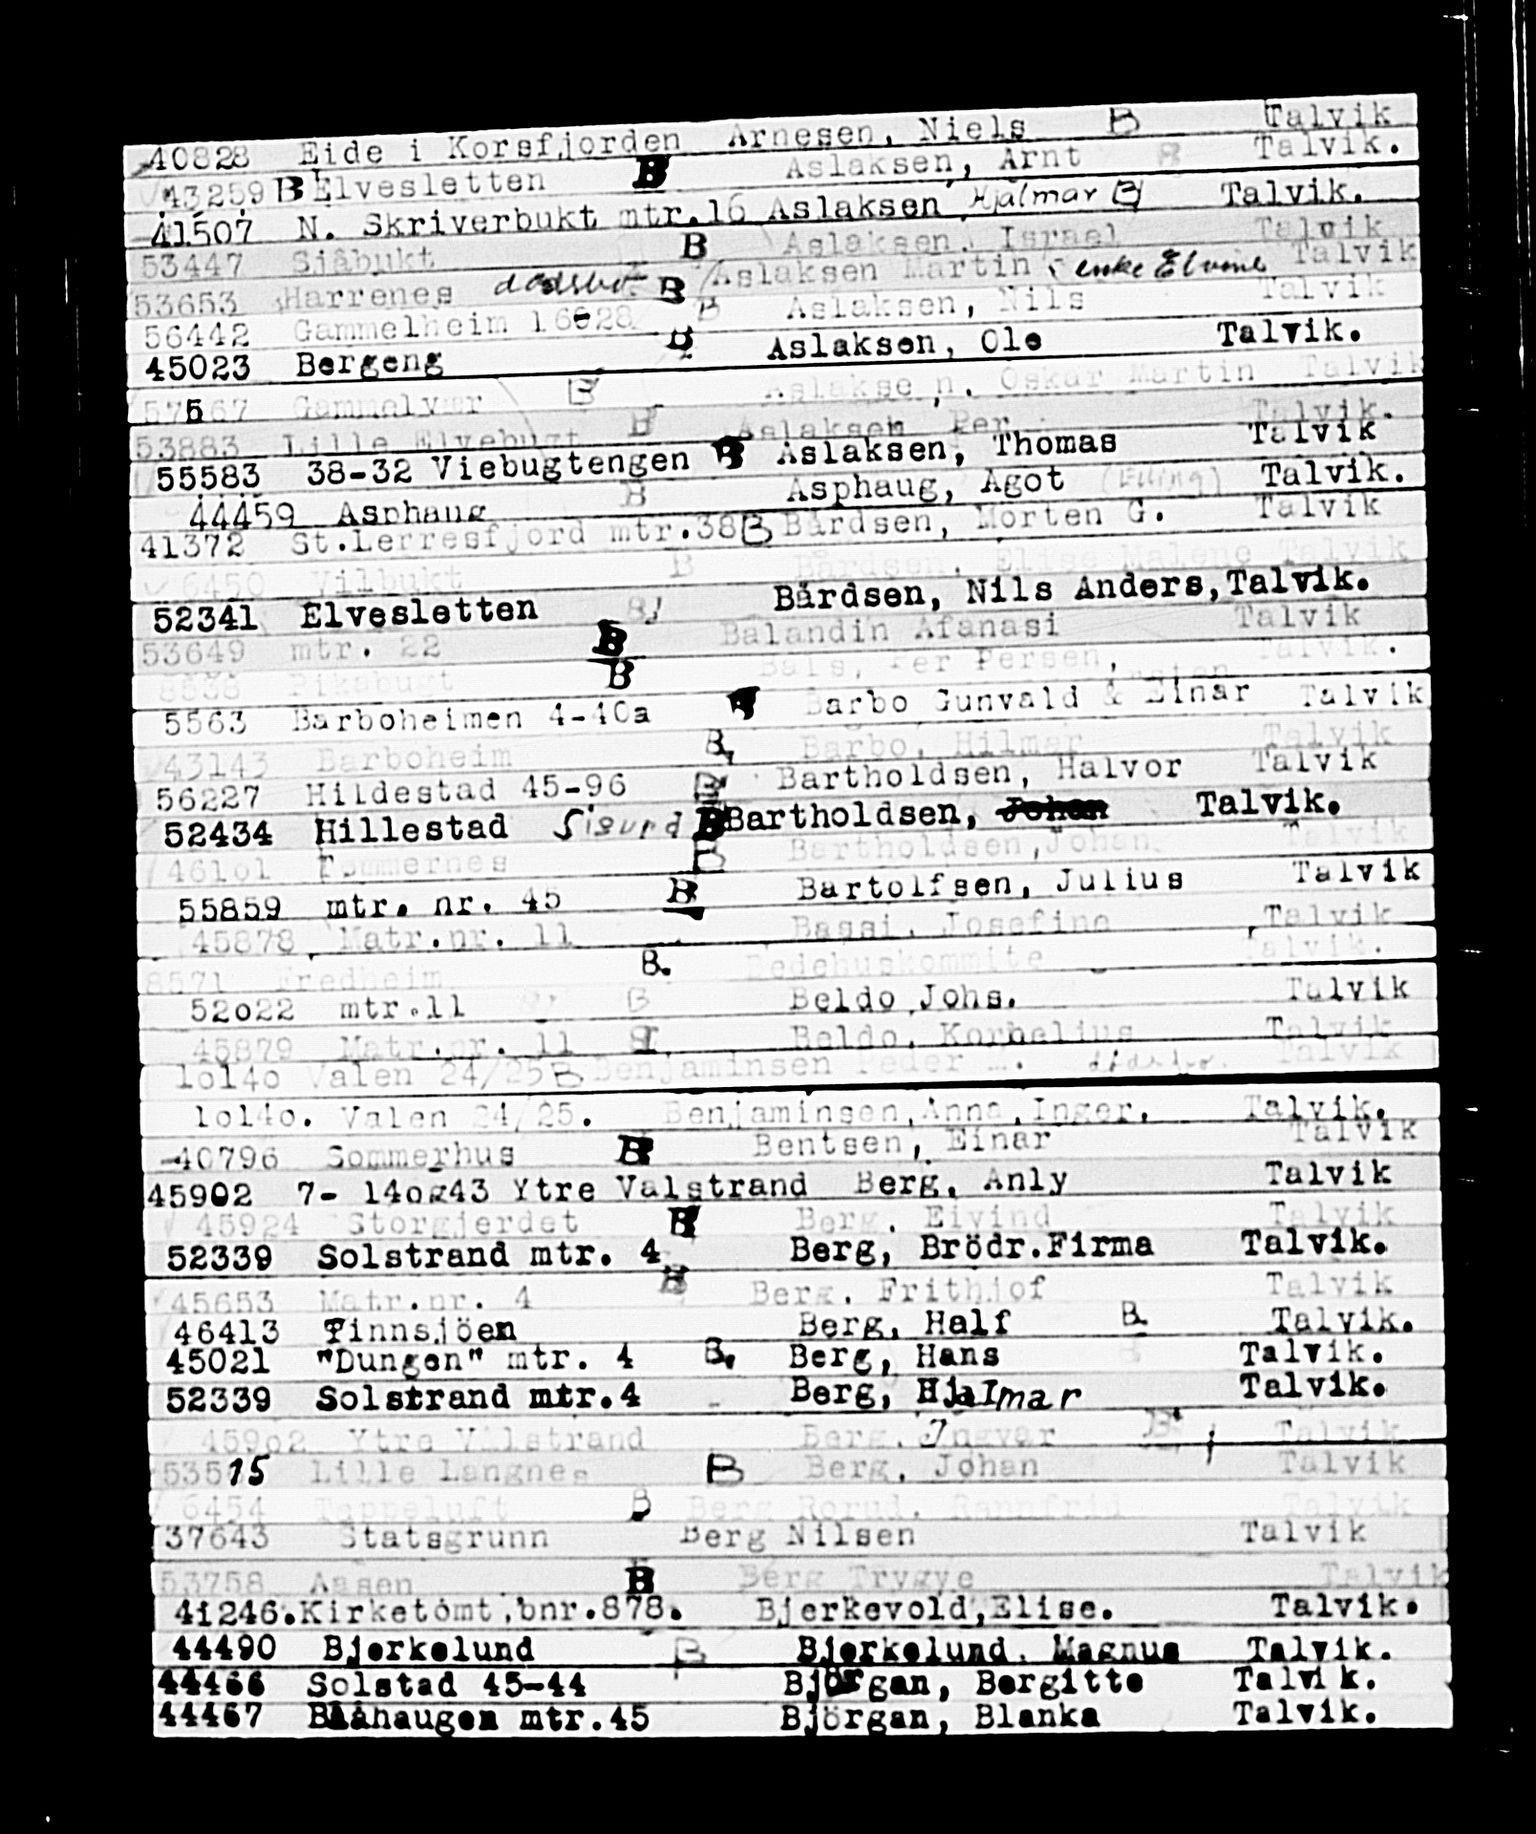 40828 Eide i Korsfjorden Arnesen, Niels B Talvik
43259 B Elvesletten B Aslaksen, Arnt B Talvik.
41507 N. Skriverbukt mtr.16 Aslaksen Hjalmar B Talvik.
53447 Sjåbukt B Aslaksen, Israel Talvik
53653 Harrenes dødsbo B Aslaksen Martin, enke Talvik
56442 Gammelheim 16-28 B Aslaksen, Nils Talvik
45023 Bergeng B. Aslaksen, Ole Talvik.
57567 Gammelvær B Aslaksen, Oskar Martin Talvik
53883 Lille Elvebugt B Aslaksen Per Talvik.
55583 38-32 Viebugtengen B Aslaksen, Thomas Talvik
44459 Asphaug B Asphaug, Agot Talvik.
41372 St.Lerresfjord mtr.38 B Bårdsen, Morten G. Talvik
6450 Vilbukt B Bårdsen, Elise Malene Talvik
52341 Elvesletten B Bårdsen, Nils Anders, Talvik.
53649 mtr. 22 B Balandin Afanasi Talvik
8538 Pikabugt B Bals, Per Persen, Talvik.
5563 Barboheimen 4-40a B Barbo Gunvald & Einar Talvik
43143 Barboheim B, Barbo, Hilmar Talvik
56227 Hildestad 45-96 B Bartholdsen, Halvor Talvik
52434 Hillestad Sigurd B Bartholdsen, Johan Talvik.
46101 Fommernes B Bartholdsen, Johan. Talvik
55859 mtr. nr. 45 B Bartolfsen, Julius Talvik
45878 Matr.nr. 11 Bassi, Josefine Talvik
8571 Fredheim B. Bedehuskommite Talvik.
52022 mtr.11 B Beldo, Johs. Talvik
45879 Matr.nr. 11 B. Beldo, Kornelius Talvik
10140 Valen 24/25 B Benjaminsen Peder Talvik
10140. Valen 24/25. Benjaminsen, Anna, Inger. Talvik.
40796 Sommerhus B Bentsen, Einar Talvik
45902 7- 14og43 Ytre Valstrand Berg, Anly Talvik
45924 Storgjerdet B Berg, Eivind Talvik
52339 Solstrand mtr. 4 Berg, Brödr.Firma Talvik.
45653 Matr.nr. 4 B Berg, Frithjof Talvik
46413 Finnsjöen Berg, Half B. Talvik.
45021 "Dungen" mtr. 4 B. Berg, Hans Talvik.
52339 Solstrand mtr.4 Berg, Hjalmar Talvik.
45902 Ytre Valstrand Berg, Ingvar B. Talvik
53515 Lille Langnes B Berg, Johan Talvik
6454 Tappeluft B Berg Rorud, Rannfrid Talvik
37643 Statsgrunn Berg Nilsen Talvik
53758 Aasen B Berg Trygve Talvik
41246.Kirketomt,bnr.878. Bjerkevold,Elise. Talvik.
44490 Bjerkelund B Bjerkelund, Magnus Talvik.
44466 Solstad 45-44 Björgan, Bergitte Talvik.
44467 Blåhaugen mtr.45 Björgan, Blanka Talvik.